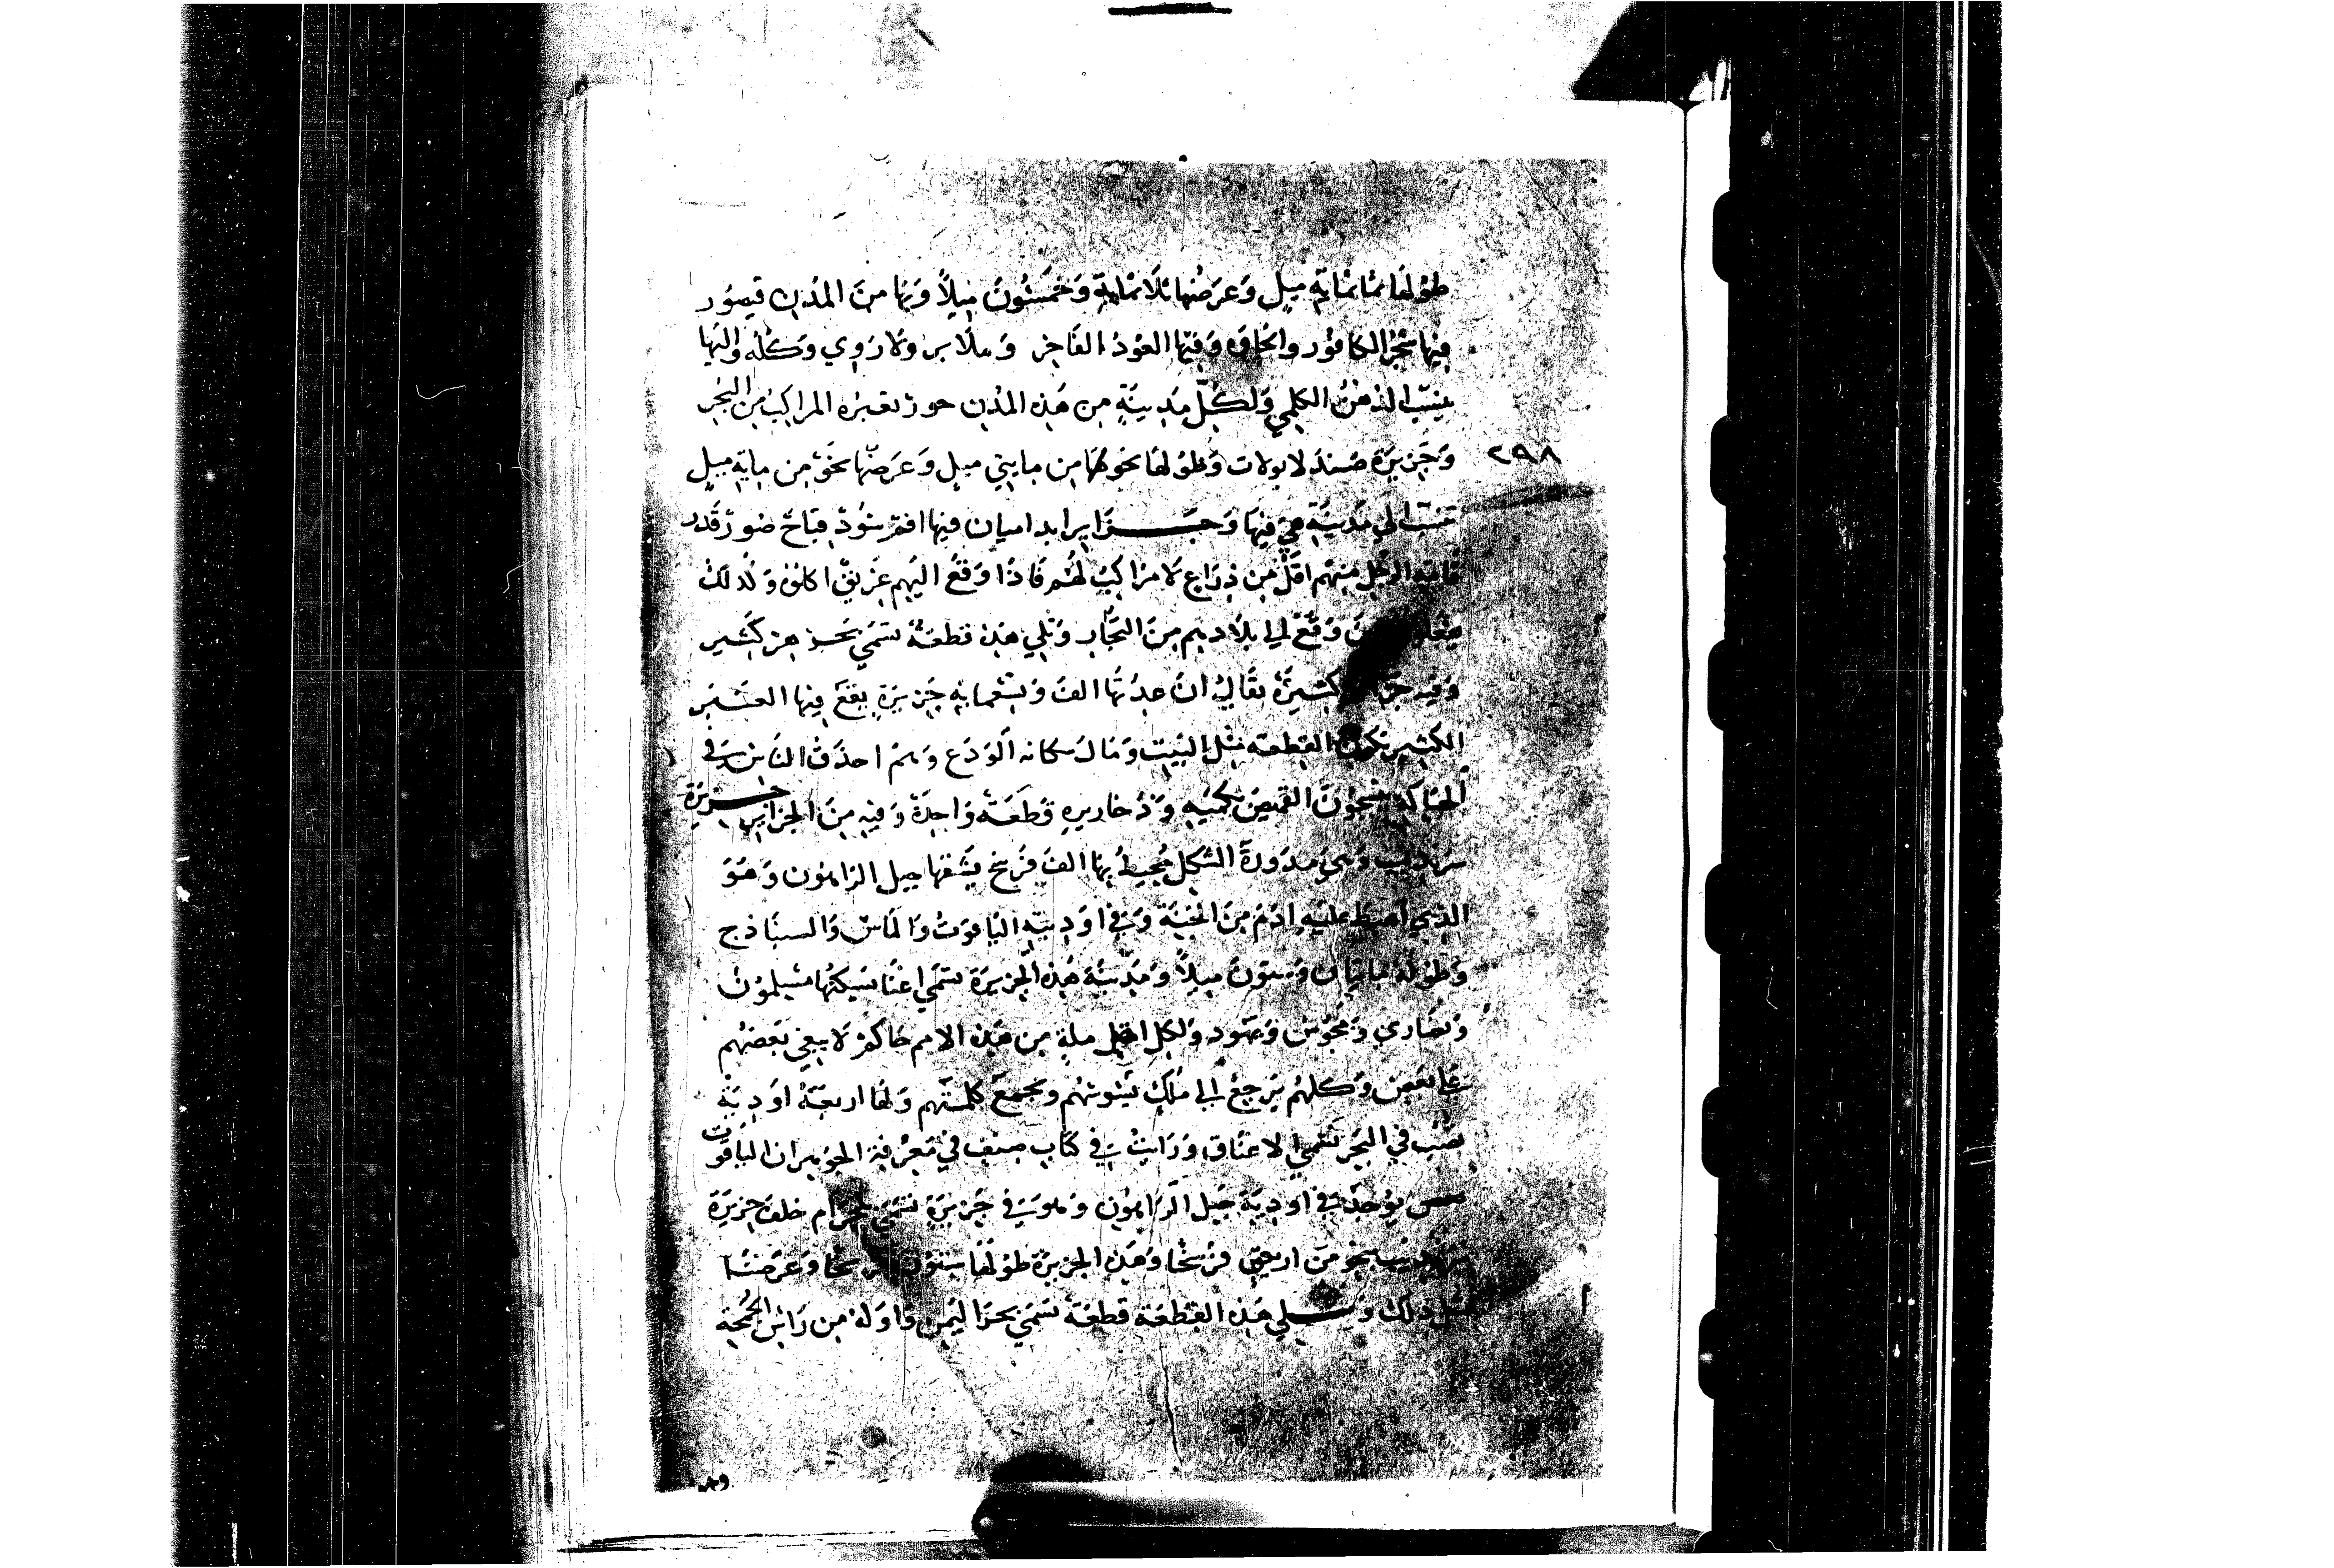 طولها ثمانمائة ميل وعرضها ثلاثمائة وخمسون ميلاً وبها من المدن قيصور
فيها شجر الكافور وانجافه وفيها العود الفاخر وملاير ولاروي وكله واليها
ينسب الدهن الكلهي ولكل مدينة من هذه المدن حور تعبره المراكب من البحر
٢٩٨
وجزيرة صندلابولات وطولها نحوها من مايتي ميل وعرضها نحو من ماية ميل
تنسب الي مدينة هي فيها وجزاير انداميان فيها اقوم سود قباح صور قدر
قامة الرجل منهم اقل من ذراع لا مراكب لهم فاذا وقع اليهم غريق اكلوه وكذلك
وقع الي بلادهم من التجار وتلي هذه قطعة تسمي بحر هركند
وفيه كثيرة يقال ان عدتها الف وتسعماية جزيرة يقع فيها العنبر
الكثير تكون القطعة مثل البيت ومال سكانه الودع وهم احذق الناس في
الحياكة ينسجون القميص بكميه ودخاريره قطعة واحدة وفيه من الجزاير جزيرة
سرنديب وهي مدورة الشكل يحيط بها الف فرسخ يشقها جبل الراهون وهو
الذي اهبط عليه ادم من الجنة وفي اوديته الياقوت والماس والسنباذج
وطوله مايتان وستون ميلاً ومدينة هذه الجزيرة تسمي اغنا يسكنها مسلمون
ونصاري ومجوس ويهود ولكل اهل ملة من هذه الامم حاكم لا يبغي بعضهم
علي بعض وكلهم يرجع الي ملك يسوسهم ويجمع كلمتهم ولها اربعة اودية
تصب في البحر تسمي الاغناق ورايت في كتاب صنف في معرفة الجوهر ان الياقوت
يوجد في اودية جبل الراهون وهو في جزيرة تسمي خلف جزيرة
سرنديب بنحو من اربعين فرسخا وهذه الجزيرة طولها ستون فرسخا وعرضها
مثل ذلك وتلي هذه القطعة قطعة تسمي بحر اليمن واوله من راس الجمجمة